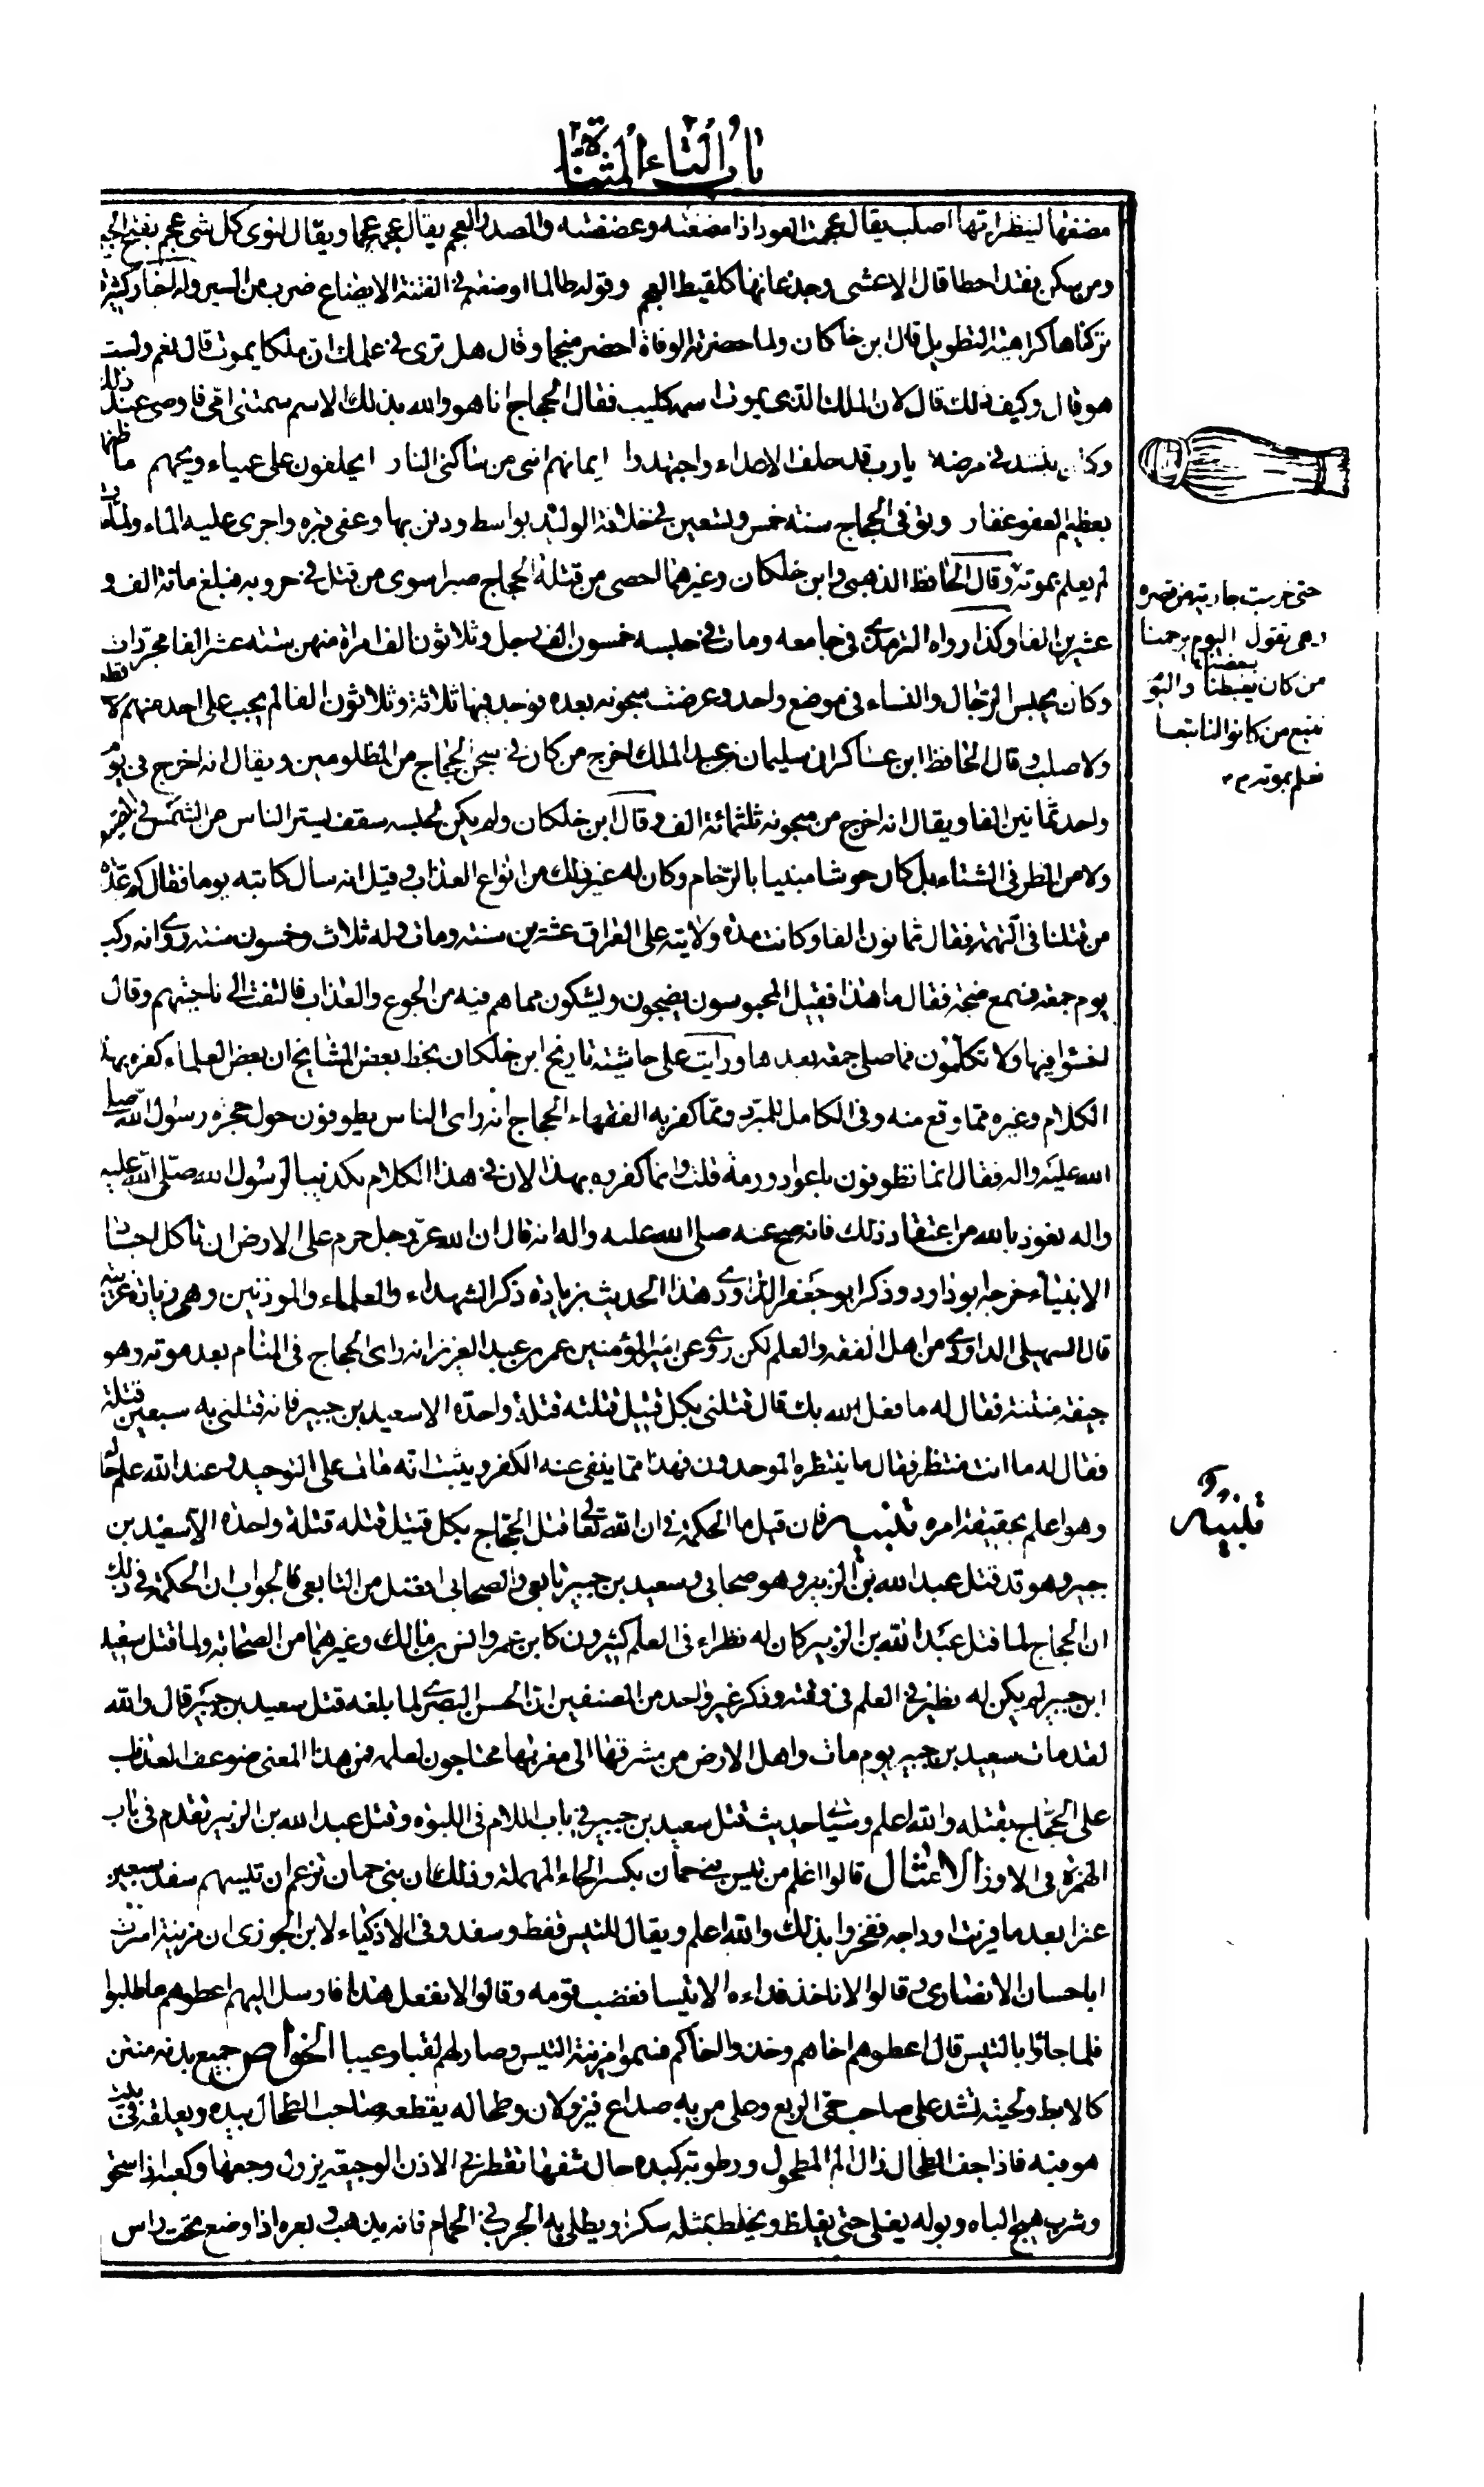 باب التاء المثناة
مضغها لينظر ايها اصلب يقال عجمت العود اذا مضغته وعضضته والمصدر العجم يقال عجمه عجما ويقال لنوى كل شئ عجم بفتح الجيم
ومن سكن فقد اخطا قال الاعشى وجذعانها كلقيط العجم وقوله طالما اوضعتم فى الفتنة الايضاع ضرب من السير وله اخبار كثيرة
تركناها كراهية التطويل قال ابن خلكان ولما حضرته الوفاة احضر منجما وقال هل ترى فى علمك ان ملكا يموت قال نعم ولست
هو قال وكيف ذلك قال لان الملك الذى يموت اسمه كليب فقال الحجاج انا هو والله بذلك الاسم سمتنى امى فاوصى عند ذلك
وكان ينشد فى مرضه يا رب قد حلف الاعداء واجتهدوا ايمانهم اننى من ساكنى النار ايحلفون على عمياء ويحهم ما ظنهم
بعظيم العفو غفار وتوفى الحجاج سنة خمس وتسعين فى خلافة الوليد بواسط ودفن بها وعفى قبره واجرى عليه الماء ولما مات
لم يعلم بموته وقال الحافظ الذهبى وابن خلكان وغيرهما احصى من قتله الحجاج صبرا سوى من قتل فى حروبه فبلغ مائة الف و
عشرين الفا وكذا رواه الترمذى فى جامعه ومات فى حبسه خمسون الف رجل وثلاثون الف امراة منهن ستة عشر الفا مجردات
وكان يحبس الرجال والنساء فى موضع واحد وعرضت سجونه بعده فوجد فيها ثلاثة وثلاثون الفا لم يجب على احد منهم لا قطع
ولا صلب وقال الحافظ ابن عساكر ان سليمان بن عبد الملك اخرج من كان فى سجن الحجاج من المظلومين ويقال انه اخرج فى يوم
واحد ثمانين الفا ويقال انه اخرج من سجونه ثلثمائة الف وقال ابن خلكان ولم يكن لحبسه سقف يستر الناس من الشمس فى الصيف
ولا من المطر فى الشتاء بل كان حوشا مبنيا بالرخام وكان له غير ذلك من انواع العذاب وقيل انه سال كاتبه يوما فقال كم عدة
من قتلنا فى التهمة فقال ثمانون الفا وكانت مدة ولايته على العراق عشرين سنة ومات وله ثلاث وخمسون سنة روى انه ركب
يوم جمعة فسمع ضجة فقال ما هذا فقيل المحبوسون يضجون ويشكون مما هم فيه من الجوع والعذاب فالتفت الى ناحيتهم وقال
اخسئوا فيها ولا تكلمون فما صلى جمعة بعدها ورايت على حاشية تاريخ ابن خلكان بخط بعض المشايخ ان بعض العلماء كفره بهذا
الكلام وغيره مما وقع منه وفى الكامل للمبرد ومما كفر به الفقهاء الحجاج انه راى الناس يطوفون حول حجرة رسول الله صلى
الله عليه واله فقال انما تطوفون باعواد ورمة قلت وانما كفروه بهذا لان فى هذا الكلام تكذيبا لرسول الله صلى الله عليه
واله نعوذ بالله من اعتقاد ذلك فانه صح عنه صلى الله عليه واله انه قال ان الله عز وجل حرم على الارض ان تاكل اجساد
الانبياء خرجه ابو داود وذكر ابو جعفر الداودى هذا الحديث بزيادة ذكر الشهداء والعلماء والموذنين وهى زيادة غريبة
قال السهيلى الداودى من اهل الفقه والعلم لكن روى عن امير المؤمنين عمر بن عبد العزيز انه راى الحجاج فى المنام بعد موته وهو
جيفة منتنة فقال له ما فعل الله بك قال قتلنى بكل قتيل قتلته قتلة واحدة الا سعيد بن جبير فانه قتلنى به سبعين قتلة
فقال له ما انت منتظر فقال ما ينتظره الموحدون فهذا مما ينفى عنه الكفر ويثبت انه مات على التوحيد وعند الله علم حاله
وهو اعلم بحقيقة امره تنبيه فان قيل ما الحكمة فى ان الله تعالى قتل الحجاج بكل قتيل قتله قتلة واحدة الا سعيد بن
جبير وهو قد قتل عبد الله بن الزبير وهو صحابى وسعيد بن جبير تابعى والصحابى افضل من التابعى فالجواب ان الحكمة فى ذلك
ان الحجاج لما قتل عبد الله بن الزبير كان له نظراء فى العلم كثيرون كابن عمر وانس بن مالك وغيرهما من الصحابة ولما قتل سعيد
ابن جبير لم يكن له نظير فى العلم فى وقته وذكر غير واحد من المصنفين ان الحسن البصرى لما بلغه قتل سعيد بن جبير قال والله
لقد مات سعيد بن جبير يوم مات واهل الارض من مشرقها الى مغربها محتاجون لعلمه فمن هذا المعنى ضوعف العذاب
على الحجاج بقتله والله اعلم وسياتى حديث قتل سعيد بن جبير فى باب اللام فى اللبوة وقتل عبد الله بن الزبير تقدم فى باب
الهمزة فى الاوز الامثال قالوا اغلم من تيس بنى حمان بكسر الحاء المهملة وذلك ان بنى حمان تزعم ان تيسهم سفد سبعين
عنزا بعد ما فريت اوداجه ففخروا بذلك والله اعلم ويقال للتيس قفط وسفد وفى الاذكياء لابن الجوزى ان مزينة اسرت
ابا حسان الانصارى وقالوا لا ناخذ فداءه الا تيسا فغضب قومه وقالوا لا نفعل هذا فارسل اليهم اعطوهم ما طلبوا
فلما جاؤا بالتيس قال اعطوهم اخاهم وخذوا اخاكم فسموا مزينة التيس وصار لهم لقبا وعيبا الخواص جميع بدنه منتن
كالابط ولحيته تشد على صاحب حمى الربع وعلى من به صداع فيزولان وطحاله يقطعه صاحب الطحال بيده ويعلقه فى بيت
هو فيه فاذا جف الطحال زال الم المطحول ورطوبة كبده حال شقها تقطر فى الاذن الوجعة يزول وجعها وكعبه اذا سحق
وشرب هيج الباه وبوله يغلى حتى يغلظ ويخلط بمثله سكرا ويطلى به الجرب فى الحمام فانه يذهب وبعره اذا وضع تحت راس
حتى خرجت جارية من قصره
وهى تقول اليوم يرحمنا
من كان يغبطنا واليوم
نتبع من كانوا لنا تبعا
فعلم بموته
تنبيه